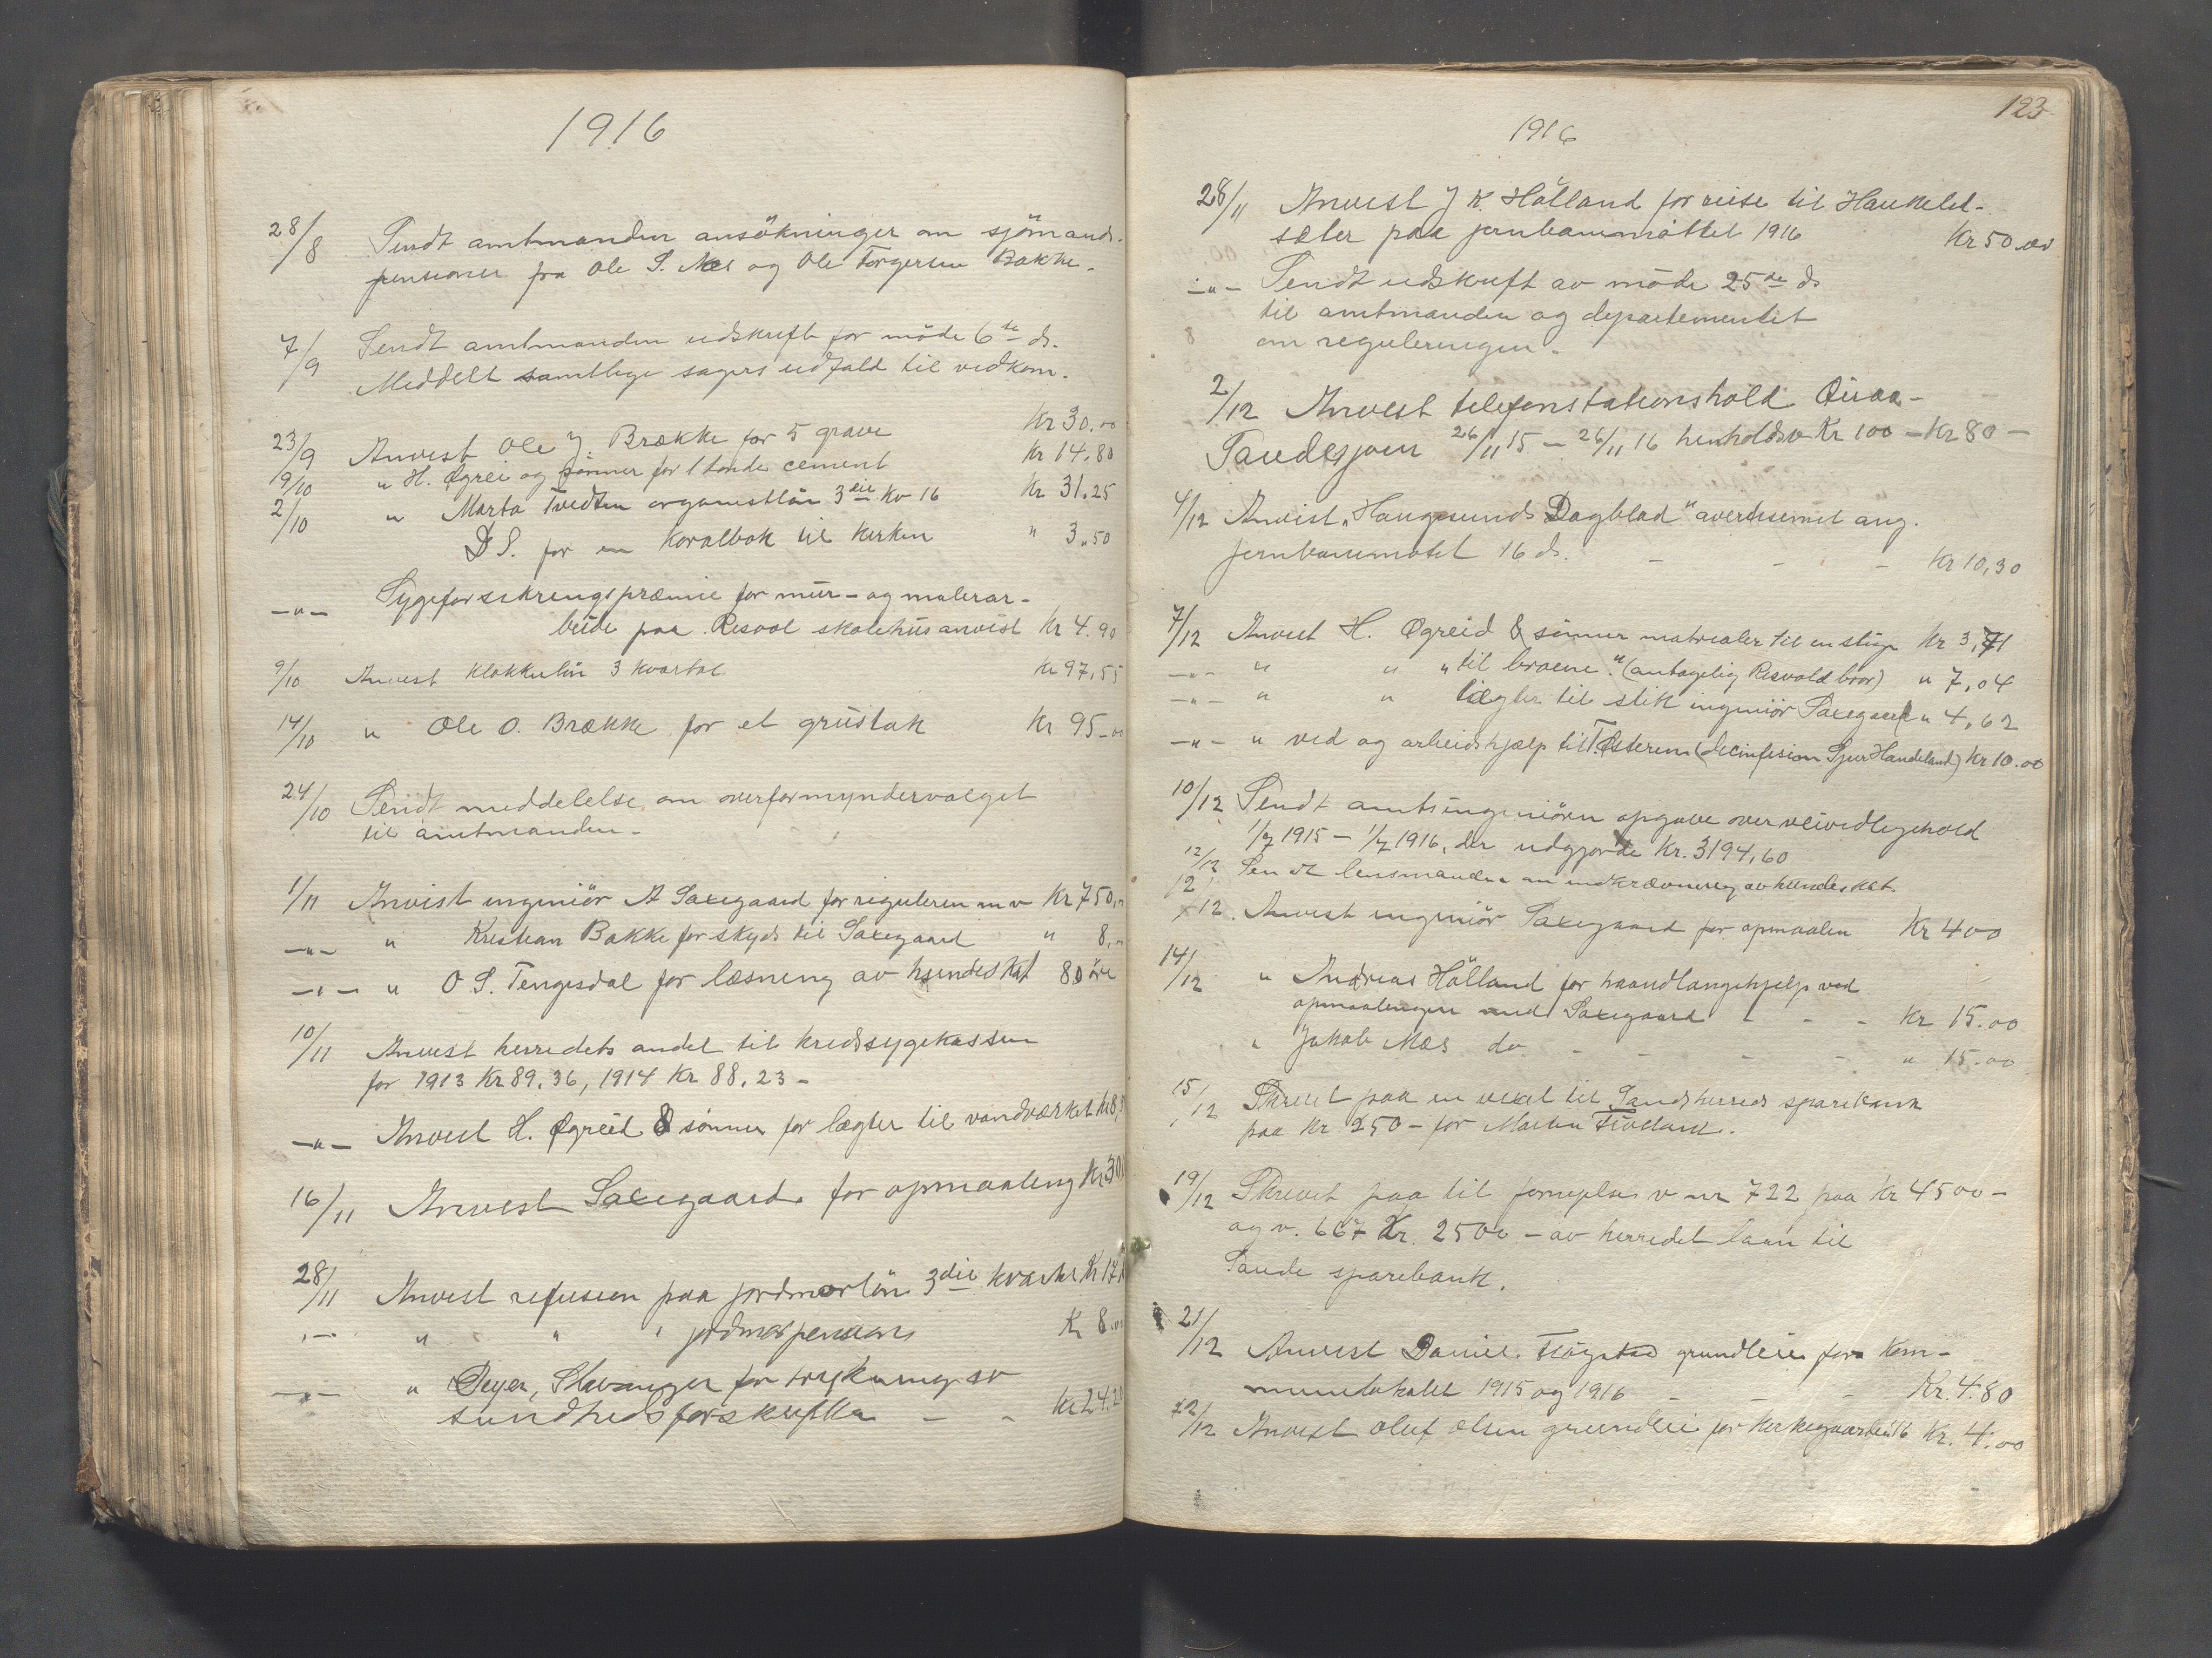 1916
28/8 Sendt amtmanden ansökninger om sjömands-
pensioner fra Ole S. Næs og Ole Torgersen Bakke.
7/9 Sendt amtmanden udskrift for möde 6te ds.
Meddelt samtlige sagers udfald til vedkom.
23/9 Anvist Ole J Brække for 5 grave Kr 30.00
9/10 " H. Øgrei og sønner for 1 tonde cement Kr 14.80
2/10 " Marta Tvedten organistlön 3die kv 16 Kr 31.25
D S. for en Koralbok til Kirken " 3.50
-"- Sygeforsikringspræmie for mur- og malerar-
beide paa Risvol skolehus anvist Kr 4.90
9/10 Anvist Klokkerlön 3 kvartal Kr 97,55
14/10 " Ole O. Brække for et grustak Kr 95-00
24/10 Sendt meddelelse om overformyndervalget
til amtmanden.
1/11 Anvist ingeniör A Saxegaard for reguleren m v Kr 750,-
-"- " Kristian Bakke for skyds til Saxegaard " 8,-
-"- " O S. Tengesdal for læsning av hundeskat 80 öre
10/11 Anvist herredets andel til kredssygekassen
for 1913 Kr 89.36, 1914 Kr 88.23-
-"- Anvist H. Øgreid & sönner for lægter til vandværket kr 8,
16/11 Anvist Saxegaard for opmaaling Kr 300
28/11 Anvist refusion paa jordmorlön 3die kvartal Kr 17,
-"- " " " jordmorpensions Kr 8.00
-"- " Dreyer, Stavanger for trykning av
sundhedsforskrifter - - kr 24.20
123
1916
28/11 Anvist J K. Hålland for reise til Haukeli-
sæter paa jernbanemöttet 1916 Kr 50.00
-"- Sendt udskrift av möde 25de ds
til amtmanden og departementet
om reguleringen.
2/12 Anvist telefonstationshold
26/11 15 - 26/11 16 henholdsv Kr 100 - Kr 80 -
4/12 Anvist "Haugesunds Dagblad" avertisement ang.
jernbanemötet 16 ds. - - - Kr 10,30
7/12 Anvist H. Øgreid & sönner matrialer til en stige Kr 3,71
-"- " " "til broene" (antagelig Risvold bro) " 7,04
-"- " " lægter til stik ingeniör Saxegaard " 4,62
-"- " ved og arbeidshjælp til T. Østerem (decinfesion Sjur Handeland) Kr 10.00
10/12 Sendt amtsingeniören opgave over veivedligehold
1/7 1915 - 1/7 1916, der udgjorde Kr. 3194,60
12/12 Sendt lensmanden om indkrævning av hundeskat.
12/12. Anvist ingeniör Saxegaard for opmaalen Kr 400
14/12 " Andreas Hålland for haandlangehjelp ved
opmaalingen med Saxegaard - - - Kr 15.00
" Jakob Næs do - - - - " 15.00
15/12 Skrevet paa en vexel til Sands herreds sparebank
paa Kr 250 - for Martin
19/12 Skrevet paa til fornyelse v nr 722 paa Kr 4500 -
og v. 667 Kr. 2500 - av herredet laan til
Saude sparebank.
21/12 Anvist Daniel Flögstad grundleie for Kom-
munelokalet 1915 og 1916 - - - Kr. 4.80
22/12 Anvist Oluf Olsen grundleie for Kirkegaarden 16 Kr. 4.00